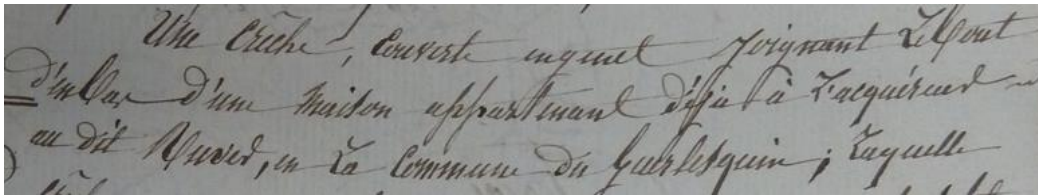 Une Crêche, Couverte en genet joignant Le Bout
d'en Bas d'une maison appartenant déja à L'acquéreur
au dit Ruver, en La Commune de Guerlesquin ; Laquelle
Crêche